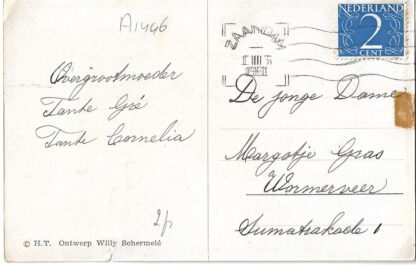 A1446
ZAANDAM
1951
NEDERLAND
2
CENT
Overgrootmoeder
Tante Gré
Tante Cornelia
De jonge Dame
Margotje Gras
Wormerveer
Sumatrakade 1
2f
© H.T. Ontwerp Willy Schermelé